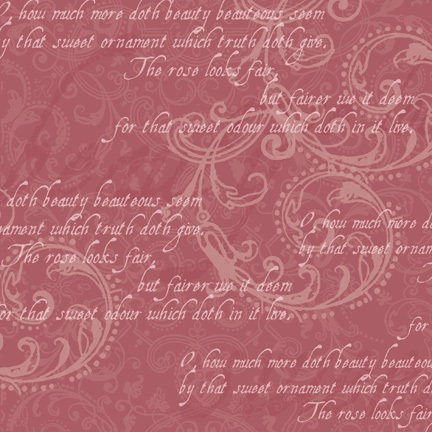 O, how much more doth beauty beauteous seem
y that sweet ornament which truth doth give.
The rose looks fair,
but fairer we it deem
for that sweet odour which doth in it live.
doth beauty beauteous seem
nament which truth doth give.
The rose looks fair,
but fairer we it deem
for that sweet odour which doth in it live.
O, how much more do
by that sweet ornam
for
O, how much more doth beauty beauteou
by that sweet ornament which truth d
The rose looks fair